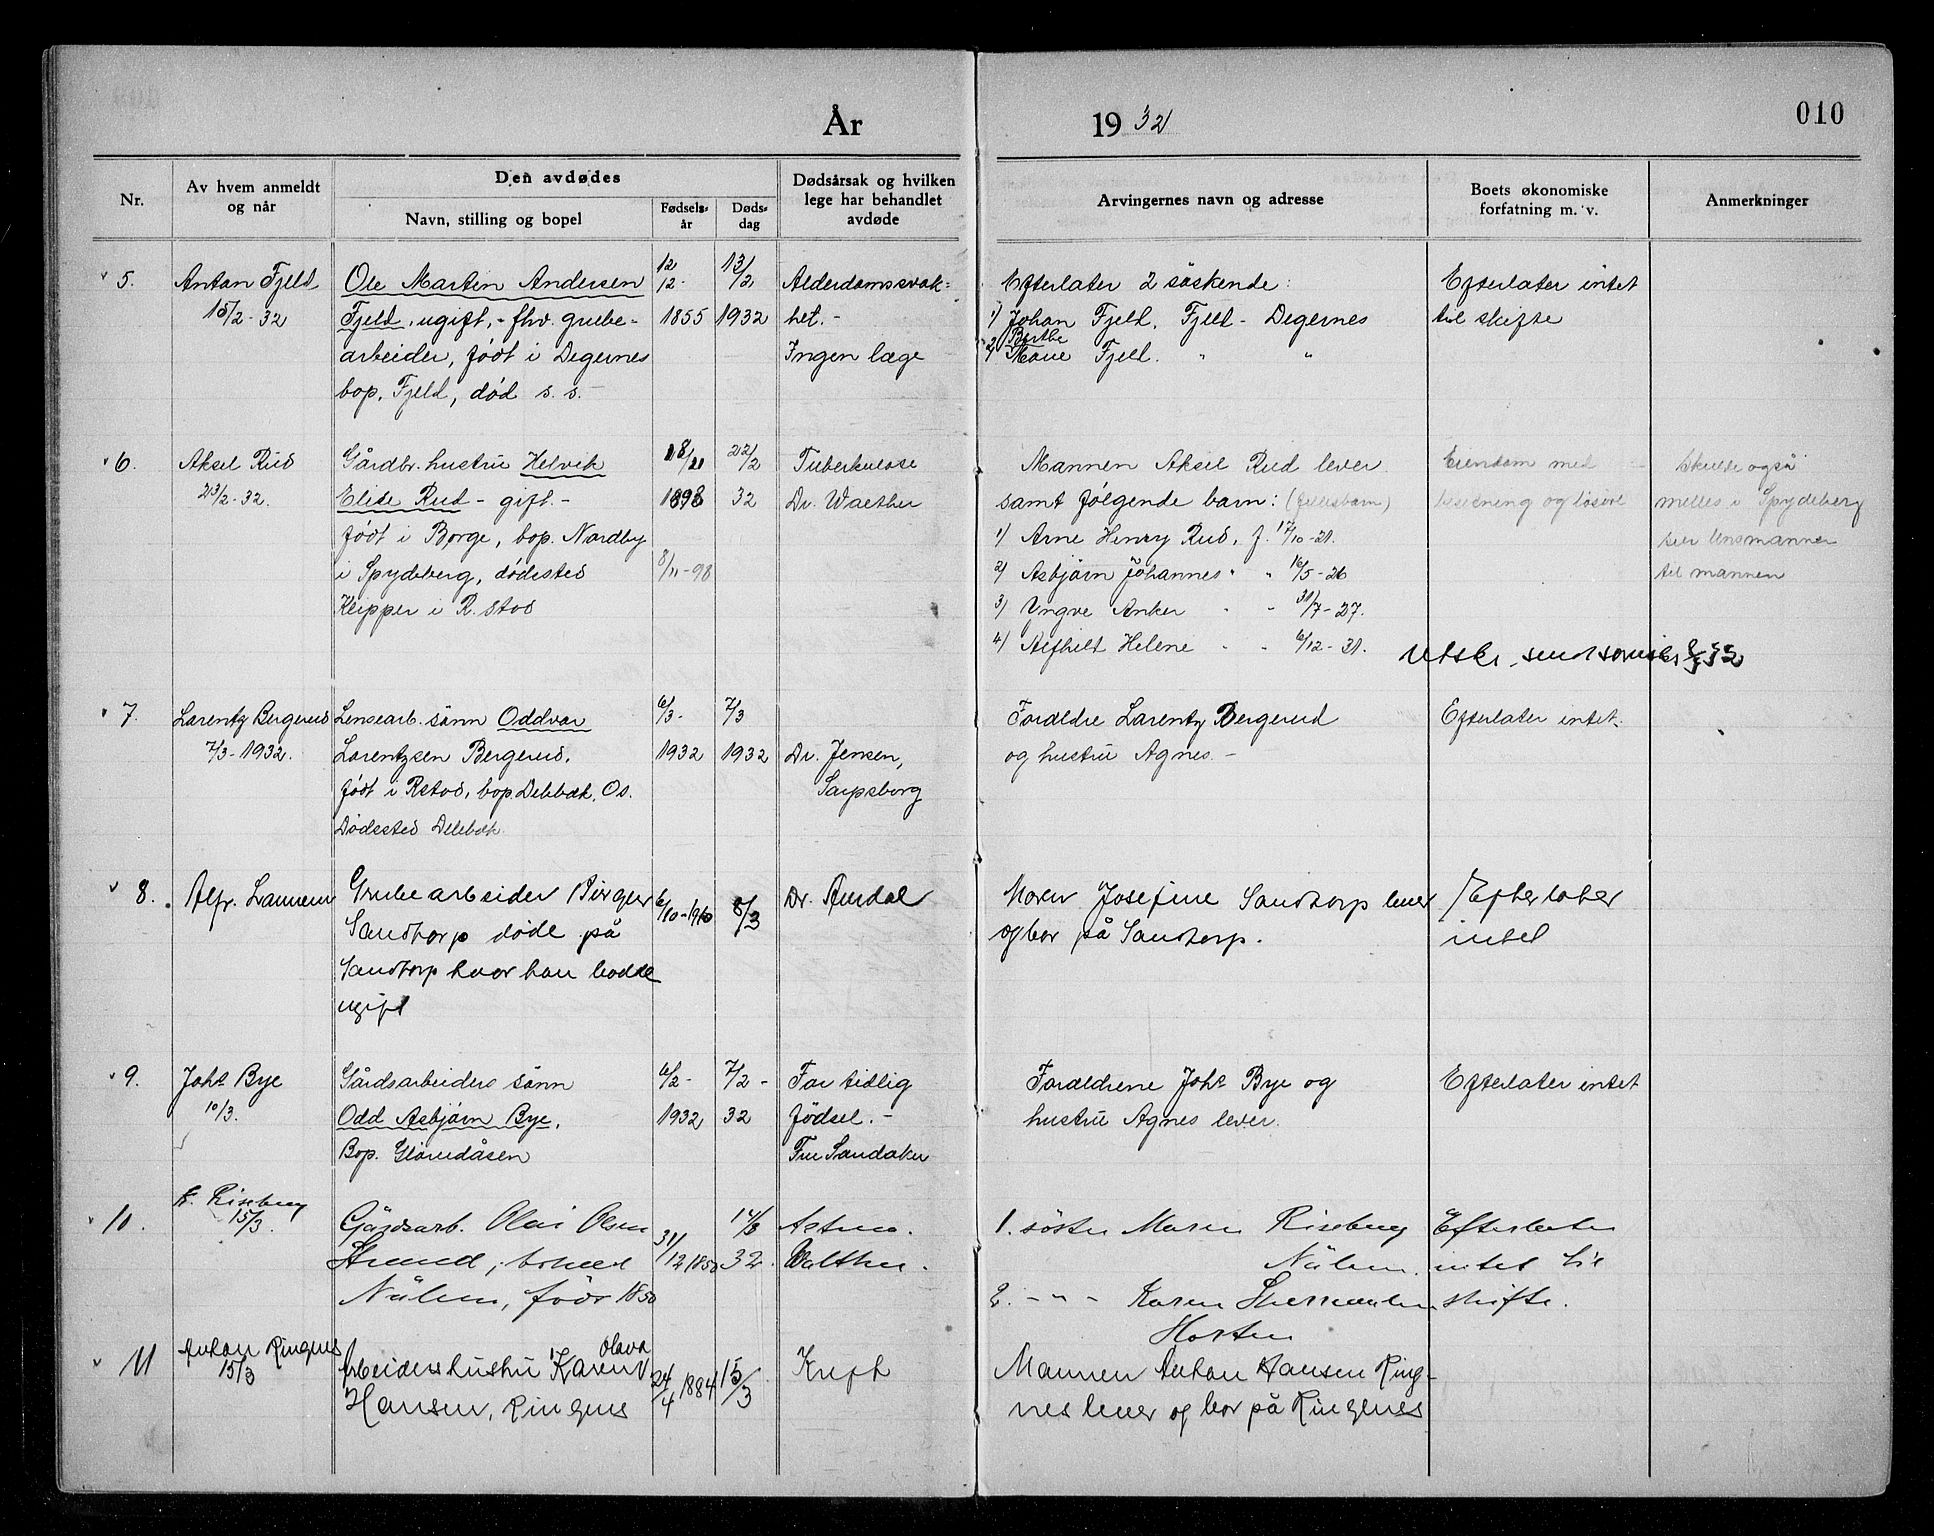 År 1932
010
Nr.
Av hvem anmeldt
og når
Den avdødes
Navn, stilling og bopel
Fødsels-
år
Døds-
dag
Dødsårsak og hvilken
lege har behandlet
avdøde
Arvingernes navn og adresse
Boets økonomiske
forfatning m. v.
Anmerkninger
5.
Anton Fjeld
15/2-32
Ole Martin Andersen
Fjeld, ugift, - fhv. grube-
arbeider, født i Degernes
bop. Fjeld, død s. s. -
12
12-
1855
13/2
1932
Alderdomssvak-
het. -
Ingen læge
Efterlater 2 søskende:
1) Johan Fjeld, Fjeld - Degernes
Berthe
2) Marie Fjeld. " "
Efterlater intet
til skifte
6.
Aksel Rud
23/2-32.
Gårdbr. hustru Helvik
Elise Rud - gift. -
født i Borge, bop. Nordby
i Spydeberg, dødested
Klipper i R.stad
18/11
1898
8/11-98
22/2
32
Tuberkulose
Dr. Walther
Mannen Aksel Rud lever
samt følgende barn: (fellesbarn)
1) Arne Henry Rud, f. 17/10-21.
2) Asbjørn Johannes " " 16/5-26
3) Yngve Anker " " 31/7-27.
4) Alfhild Helene " " 6/12-31.
Eiendom med
besetning og løsøre
Skulde også
meldes i Spydeberg
sier lensmannen
til mannen
Utskr. sendt
7.
Larentz Bergerud
7/3-1932.
Lensearb. sønn Oddvar
Larentzsen Bergerud,
født i R.stad, bop. Delebæk, Os.
Dødested Delebæk
6/3-
1932
7/3
1932
Dr. Jensen,
Sarpsborg
Foreldre Larentz Bergerud
og hustru Agnes. -
Efterlater intet.
8.
Alfr. Lannem
Grubearbeider Birger
Sandtorp døde på
Sandtorp hvor han bodde
ugift
6/10-1910
8/3
Dr. Arndal
Moren Josefine Sandtorp lever
og bor på Sandtorp.
Efterlater
intet
9.
Johs Bye
10/3.
Gårdsarbeiders sønn
Odd Asbjørn Bye,
Bop. Glomdåsen
6/2-
1932
7/2-
32
For tidlig
fødsel. -
Fru Sandaker
Foreldrene Johs Bye og
hustru Agnes lever.
Efterlater intet
10.
K. Riseberg
15/3.
Gårdsarb. Olai Olsen
Strand, bosted
Nülen, født 1850
31/12 1850
14/3
32.
Astma.
Walther.
1. søster Maren Riseberg
Nülen.
2. - " - Karen
Horten
Efterlater
intet til
skifte.
11
Anton Ringnes
15/3
Olava
Arbeiders hustru Karen
Hansen, Ringnes
24/4 1884
15/3
Kreft
Mannen Anton Hansen Ring-
nes lever og bor på Ringnes